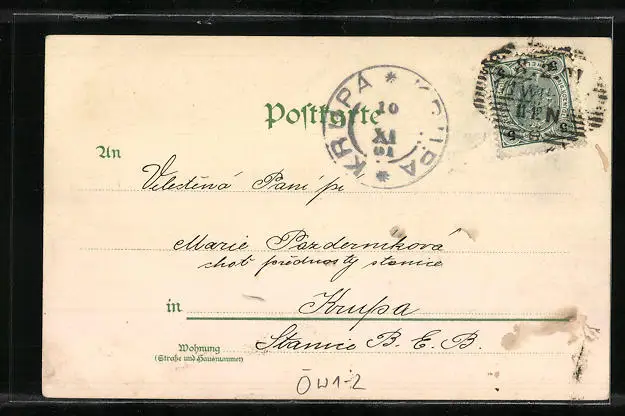 Postkarte
KRUPA * KRUPA *
10
XI
01
WIEN
5 5
An
Velectěná Paní pí
Marie Pazderniková
choť přednosty stanice
in Krupa
Wohnung
(Straße und Hausnummer)
Stanice B. E. B.
ÖW1-2